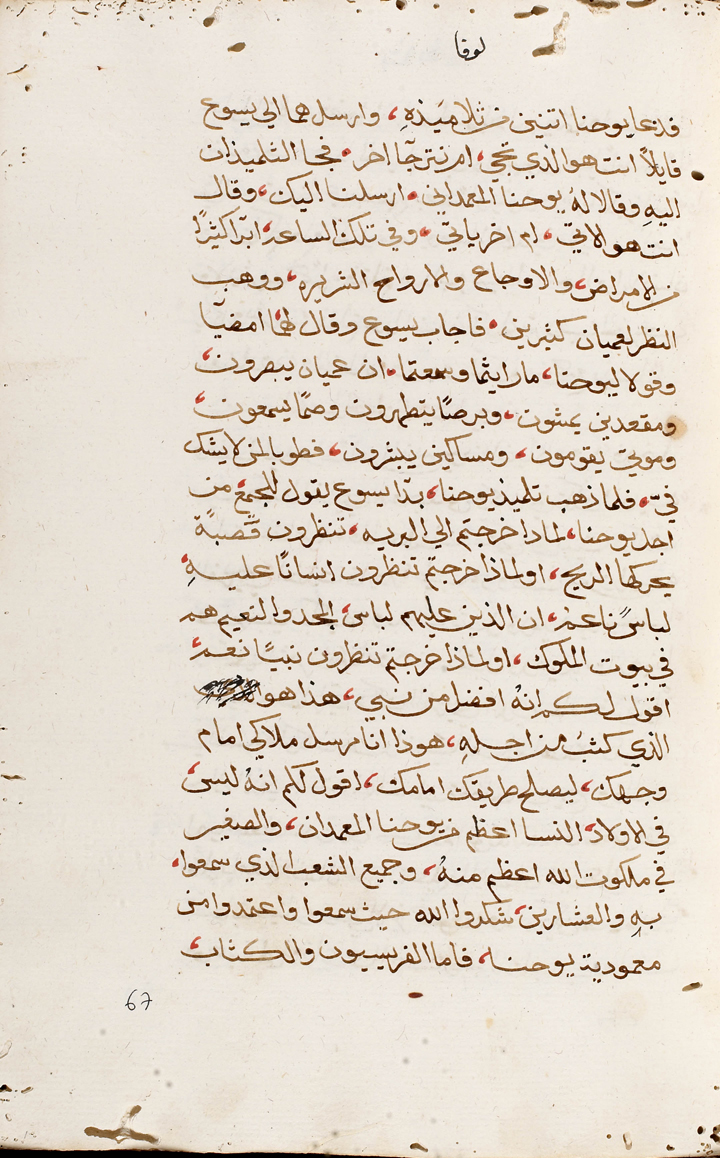 لوقا
فدعا يوحنا اتنين من ثلاميَذهِ، وارسلهما الي يسوع
قايلاً انت هو الذي تجي، ام نترجآ اخر، فجا الثلميذان
اليهِ وقالا لهُ يوحنا المعمداني، ارسلنا اليك، وقال
انت هو الاتي، ام اخر ياتي، وفي تلك الساعه، ابرآ كثيرًا
من الامراض، والاوجاع والارواح الشريره، ووهب
النظر لعميان كثيرين، فاجاب يسوع وقال لهُما امضيآ
وقولا ليوحنا، ما رايثما وسمعتما، ان عميان يبصرون،
ومقعدين يمشون، وبرصًا يتطهرون وصمًا يسمعون،
وموتي يقومون، ومساكين يبشرون، فطوبا لمن لا يشك
فيّ، فلما ذهب تلميذ يوحنا، بدآ يسوع يقول للجمع، من
اجل يوحنا، لماذا خرجتم الي البريه، تنظرون قصبةً
يحركها الريح، او لماذا خرجتم تنظرون انسانًا عليهِ،
لباسً ناعم، ان الذين عليهم لباس، المجد والنعيم هم
في بيوت الملوك، او لماذا خرجتم تنظرون نبيًا نعم،
اقول لكم انهُ افضل من نبي، هذا هو
الذي كثبَ من اجلهِ، هوذا انا مرسل ملاكي امام
وجهك، ليصلح طريقك امامك، اقول لكم انهُ ليس،
في الاولاد، النسا اعظم من يوحنا المعمدان، والصغير
في ملكوت الله اعظم منهُ، وجميع الشعب الذي سمعوا،
بهِ والعشارين، شكروا الله حيث سمعوا واعتمدوا من
معمودية يوحنا، فاما الفريسيون والكثاب،
67